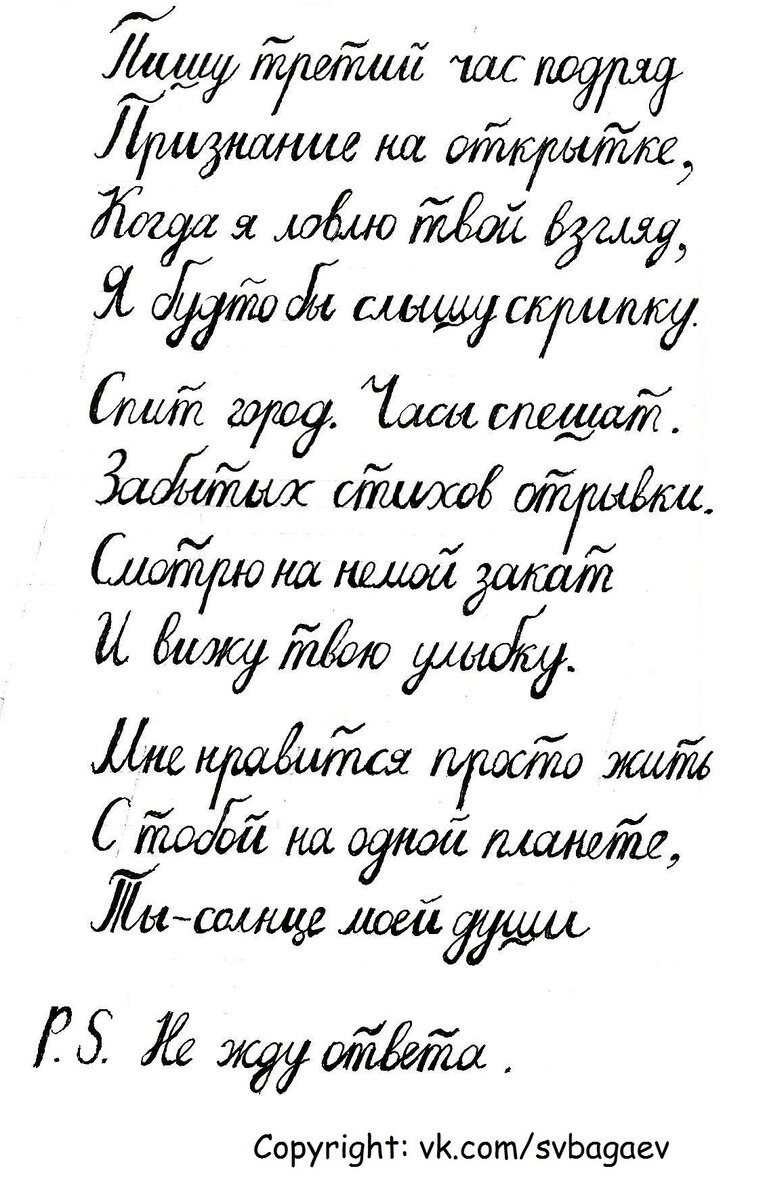 Пишу третий час подряд
Признание на открытке,
Когда я ловлю твой взгляд,
Я будто бы слышу скрипку.
Спит город. Часы спешат.
Забытых стихов отрывки.
Смотрю на немой закат
И вижу твою улыбку.
Мне нравится просто жить
С тобой на одной планете,
Ты-солнце моей души
P.S. Не жду ответа.
Copyright: vk.com/svbagaev